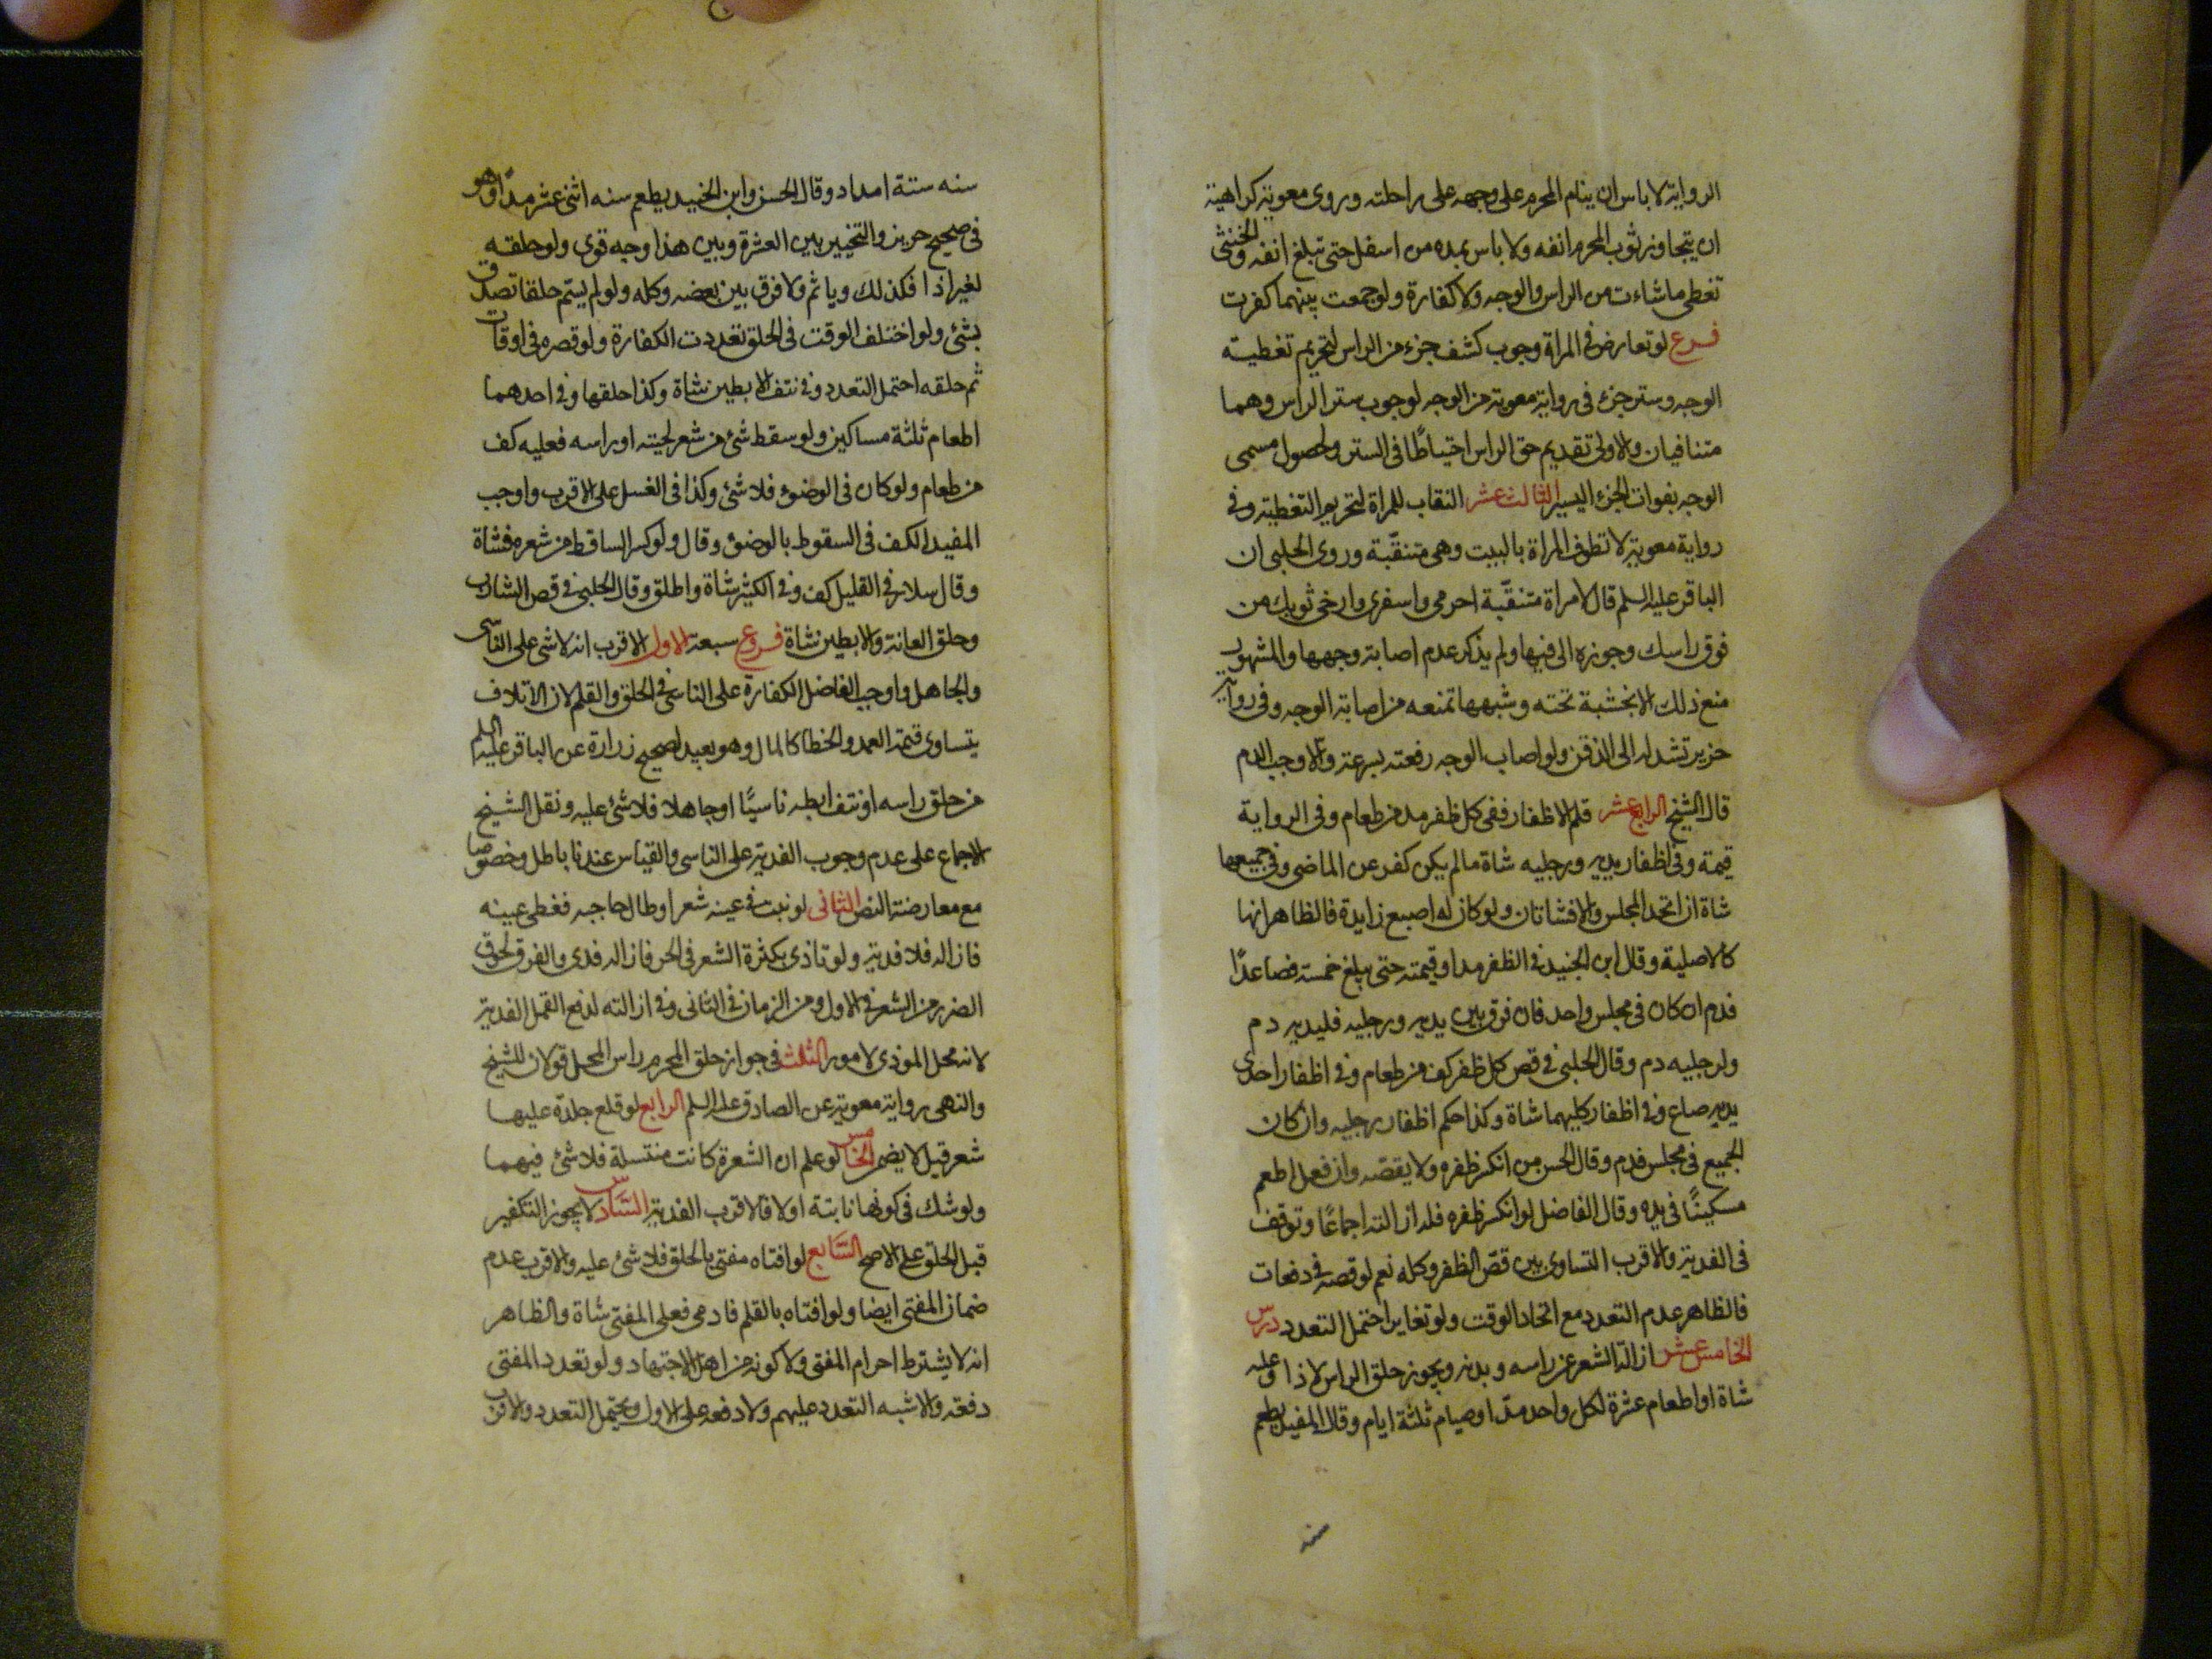 الرواية لا باس ان ينام المحرم على وجهه على راحلته وروى معوية كراهية
ان يتجاوز ثوب المحرم انفه ولا باس بمده من اسفل حتى تبلغ انفه والخنثى
تغطى ما شاءت من الراس والوجه ولا كفارة ولو جمعت بينهما كفرت
فرع لو تعارض فى المراة وجوب كشف جزء من الراس لتحريم تغطيته
الوجه وستر جزء فى رواية معوية من الوجه لوجوب ستر الراس وهما
متنافيان والاولى تقديم حق الراس احتياطًا فى الستر ولحصول مسمى
الوجه بفوات الجزء اليسير الثالث عشر النقاب للمراة لتحريم التغطية وفى
رواية معوية لا تطوف المراة بالبيت وهى متنقّبة وروى الحلبى ان
الباقر عليه السلم قال لامراة متنقّبة احرمى واسفرى وارخى ثوبك من
فوق راسك وجوزه الى فيها ولم يذكر عدم اصابة وجهها والمشهور
منع ذلك الا بخشبة تحته وشبهها تمنعه من اصابة الوجه وفى رواية
حريز تسدله الى الذقن ولو اصاب الوجه رفعته بسرعة والا وجب الدم
قال الشيخ الرابع عشر قلم الاظفار ففى كل ظفر مد من طعام وفى الرواية
قيمة وفى اظفار يديه ورجليه شاة ما لم يكن كفر عن الماضى وفى جميعها
شاة ان اتحد المجلس والا فشاتان ولو كان له اصبع زايدة فالظاهر انها
كالاصلية وقال ابن الجنيد فى الظفر مد او قيمته حتى يبلغ خمسة فصاعدًا
فدم ان كان فى مجلس واحد فان فرق بين يديه ورجليه فليديه دم
ولرجليه دم وقال الحلبى فى قص كل ظفر كف من طعام وفى اظفار احدى
يديه صاع وفى اظفار كليهما شاة وكذا حكم اظفار رجليه وان كان
الجميع فى مجلس فدم وقال الحسن من انكسر ظفره ولا يقصّه وان فعل اطعم
مسكينًا فى يده وقال الفاضل لو انكسر ظفره فله ازالته اجماعًا وتوقف
فى الفدية والاقرب التساوى بين قصّ الظفر وكله نعم لو قصه فى دفعات
فالظاهر عدم التعدد مع اتحاد الوقت ولو تغاير احتمل التعدد درس
الخامس عشر ازالة الشعر عن راسه وبدنه ويجوز حلق الراس لاذى وعليه
شاة او اطعام عشرة لكل واحد مدّ او صيام ثلثة ايام وقال المفيد يطعم
سته ستة امداد وقال الحسن وابن الجنيد يطعم سته اثنى عشر مدًا وهو
فى صحيح حريز والتخيير بين العشرة وبين هذا وجه قوى ولو حلقه
لغير اذا فكذلك وياثم ولا فرق بين بعضه وكله ولو لم يستم حلقا تصدق
بشئ ولو اختلف الوقت فى الحلق تعددت الكفارة ولو قصره فى اوقات
ثم حلقه احتمل التعدد وفى نتف الابطين شاة وكذا حلقها وفى احدهما
اطعام ثلثة مساكين ولو سقط شئ من شعر لحيته او راسه فعليه كف
من طعام ولو كان فى الوضوء فلا شئ وكذا فى الغسل على الاقرب واوجب
المفيد الكف فى السقوط بالوضوء وقال ولو كثر الساقط من شعره فشاة
وقال سلار فى القليل كف وفى الكثير شاة واطلق وقال الحلبى فى قص الشارب
وحلق العانة والابطين شاة فروع سبعة الاول الاقرب انه لا شى على الناسى
والجاهل واوجب الفاضل الكفارة على الناسى فى الحلق والقلم لان الاتلاف
يتساوى قيمة العمد والخطا كالمال وهو بعيد لصحيح زرارة عن الباقر عليه السلم
من حلق راسه او نتف ابطه ناسيًا او جاهلا فلا شئ عليه ونقل الشيخ
الاجماع على عدم وجوب الفدية على الناسى والقياس عندنا باطل وخصوصا
مع معارضة النص الثانى لو نبت فى عينه شعر او طال حاجبه فغطى عينه
فازاله فلا فدية ولو تاذى بكثرة الشعر فى الحر فازاله فدى والفرق لحوق
الضرر من الشعر فى الاول ومن الزمان فى الثانى وفى ازالته لدفع القمل الفدية
لانه محل الموذى لا مور الثالث فى جواز حلق المحرم راس المحل قولان للشيخ
والنهى رواية معوية عن الصادق عليه السلم الرابع لو قلع جلدة عليها
شعر قيل لا يضمن الخامس لو علم ان الشعرة كانت منتسلة فلا شئ فيهما
ولو شك فى كونها نابتة او لا فالاقرب الفدية السّادس لا يجوز التكفير
قبل الحلق على الاصح السّابع لو افتاه مفتى بالحلق فلا شئ عليه والاقرب عدم
ضمان المفتى ايضا ولو افتاه بالقلم فادمى فعلى المفتى شاة والظاهر
انه لا يشترط احرام المفتى ولا كونه من اهل الاجتهاد ولو تعدد المفتى
دفعة والاشبه التعدد عليهم ولا دفعة على الاول ويحتمل التعدد والاقرب
سنه